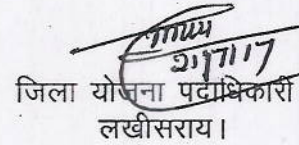 21/7/17
जिला योजना पदाधिकारी
लखीसराय।